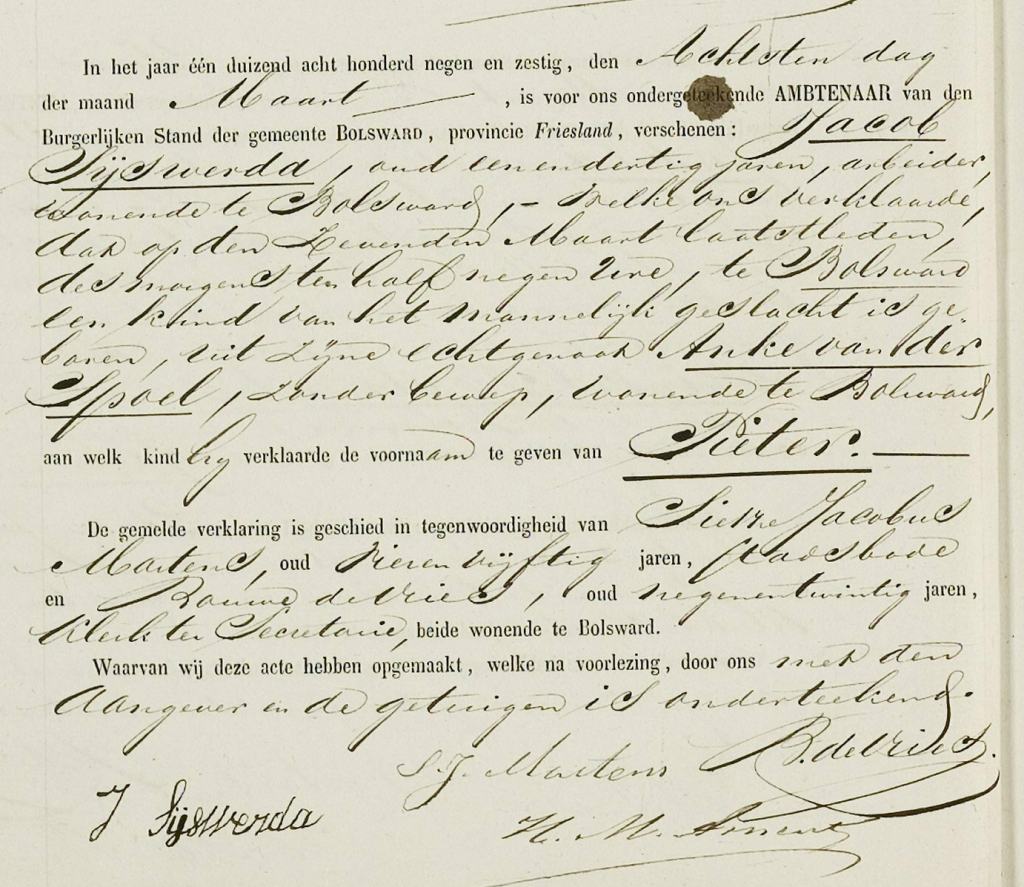 In het jaar één duizend acht honderd negen en zestig, den Achtsten dag
der maand Maart, is voor ons ondergeteekende AMBTENAAR van den
Burgerlijken Stand der gemeente BOLSWARD, provincie Friesland, verschenen: Jacob
Sijswerda, oud eenendertig jaren, arbeider,
wonende te Bolsward, – welke ons verklaarde,
dat op den Zevenden Maart laatstleden,
des morgens ten half negen ure, te Bolsward
een kind van het mannelijk geslacht is ge-
boren, uit zijne echtgenoot Anke van der
Spoel, zonder beroep, wonende te Bolsward,
aan welk kind hij verklaarde de voornaam te geven van Pieter. —
De gemelde verklaring is geschied in tegenwoordigheid van Sietze Jacobus
Martens, oud vierenvijftig jaren, stadsbode
en Bouwe de Vries, oud negenentwintig jaren,
klerk ter Secretarie, beide wonende te Bolsward.
Waarvan wij deze acte hebben opgemaakt, welke na voorlezing, door ons met den
aangever en de getuigen is onderteekend.
S. J. Martens B. de Vries.
J Sijswerda H. M.